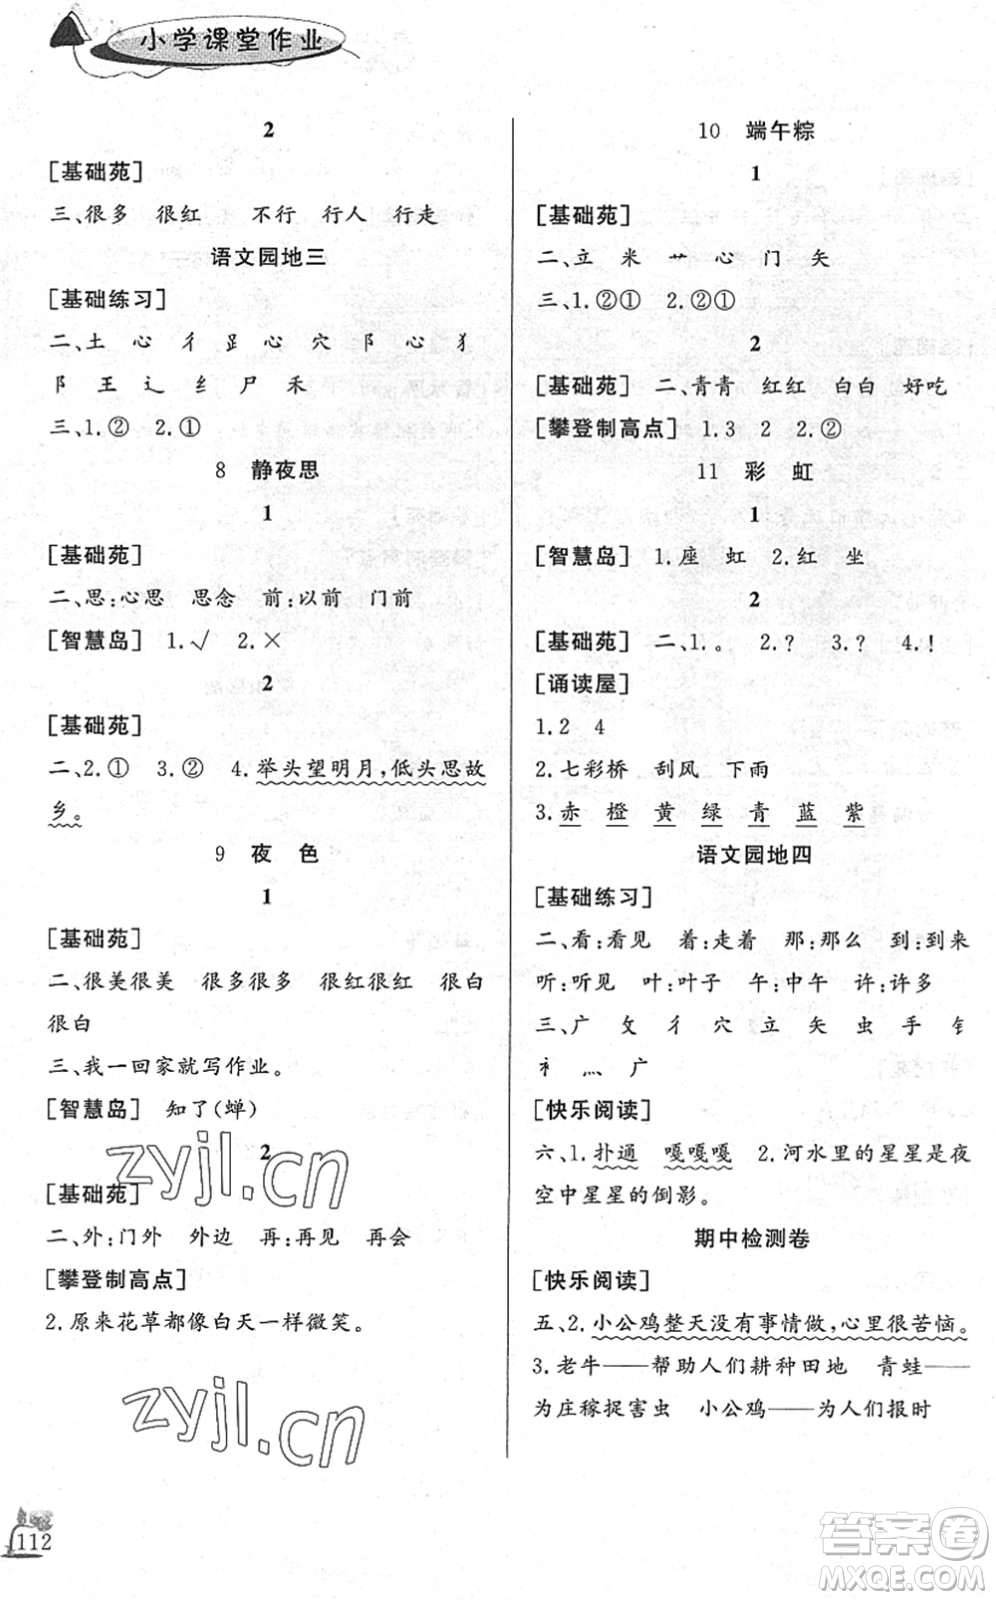 小学课堂作业
2
[基础苑]
三、很多 很红 不行 行人 行走
语文园地三
[基础练习]
二、土 心 彳 𧾷 心 穴 阝 心 犭
阝 王 辶 纟 尸 禾
三、1.② 2.①
8 静夜思
1
[基础苑]
二、思:心思 思念 前:以前 门前
[智慧岛] 1.√ 2.×
2
[基础苑]
二、2.① 3.② 4.举头望明月,低头思故
乡。
9 夜 色
1
[基础苑]
二、很美很美 很多很多 很红很红 很白
很白
三、我一回家就写作业。
[智慧岛] 知了(蝉)
2
[基础苑]
二、外:门外 外边 再:再见 再会
[攀登制高点]
2.原来花草都像白天一样微笑。
112
10 端午粽
1
[基础苑]
二、立 米 艹 心 门 矢
三、1.②① 2.②①
2
[基础苑] 二、青青 红红 白白 好吃
[攀登制高点] 1.3 2 2.②
11 彩 虹
1
[智慧岛] 1.座 虹 2.红 坐
2
[基础苑] 二、1.。 2.? 3.? 4.!
[诵读屋]
1.2 4
2.七彩桥 刮风 下雨
3.赤 橙 黄 绿 青 蓝 紫
语文园地四
[基础练习]
二、看:看见 着:走着 那:那么 到:到来
听:听见 叶:叶子 午:中午 许:许多
三、广 攵 彳 穴 立 矢 虫 手 钅
礻 灬 广
[快乐阅读]
六、1.扑通 嘎嘎嘎 2.河水里的星星是夜
空中星星的倒影。
期中检测卷
[快乐阅读]
五、2.小公鸡整天没有事情做,心里很苦恼。
3.老牛——帮助人们耕种田地 青蛙——
为庄稼捉害虫 小公鸡——为人们报时
zyjl.cn
zyjl.cn
答案圈
MXQE.COM